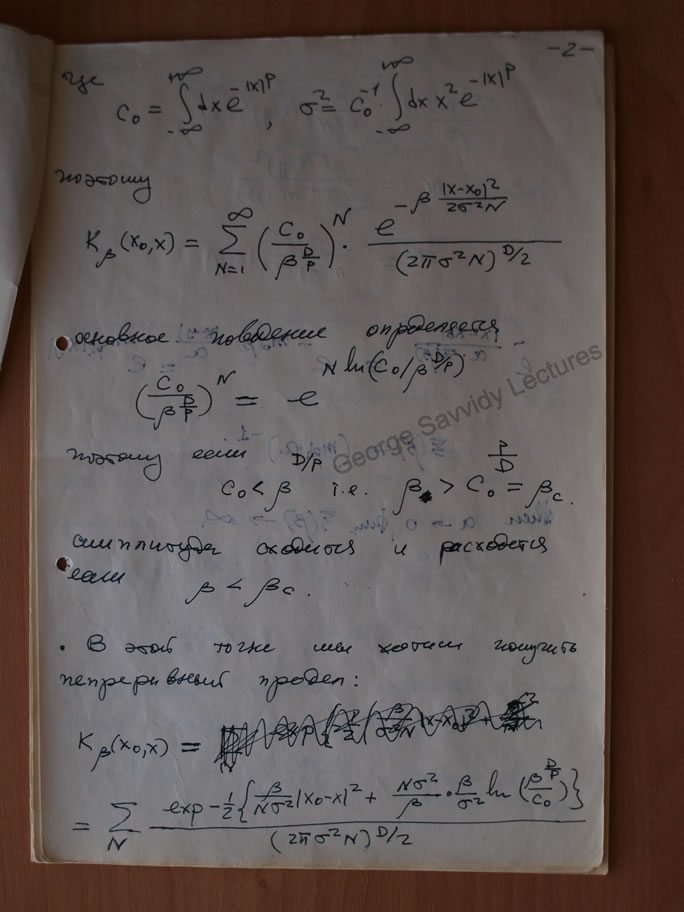 -2-
где
C₀ = ∫_{-∞}^{+∞} dx e^{-|x|^p}, σ² = C₀^{-1} ∫_{-∞}^{+∞} dx x² e^{-|x|^p}
поэтому
K_β(x₀,x) = Σ_{N=1}^{∞} (C₀/β^{D/p})^N · e^{-β |x-x₀|²/2σ²N} / (2πσ²N)^{D/2}
основное поведение определяется
(C₀/β^{D/p})^N = e^{N ln(C₀/β^{D/p})}
George Savvidy Lectures
поэтому если
C₀ < β^{D/p} i.e. β > C₀^{p/D} = β_c.
амплитуда сходится и расходется
если β < β_c.
. В этой точке мы хотим получить
непреривный предел:
K_β(x₀,x) =
= Σ_N exp -½{β/Nσ² |x₀-x|² + Nσ²/β · β/σ² ln(β^{D/p}/C₀)} / (2πσ²N)^{D/2}